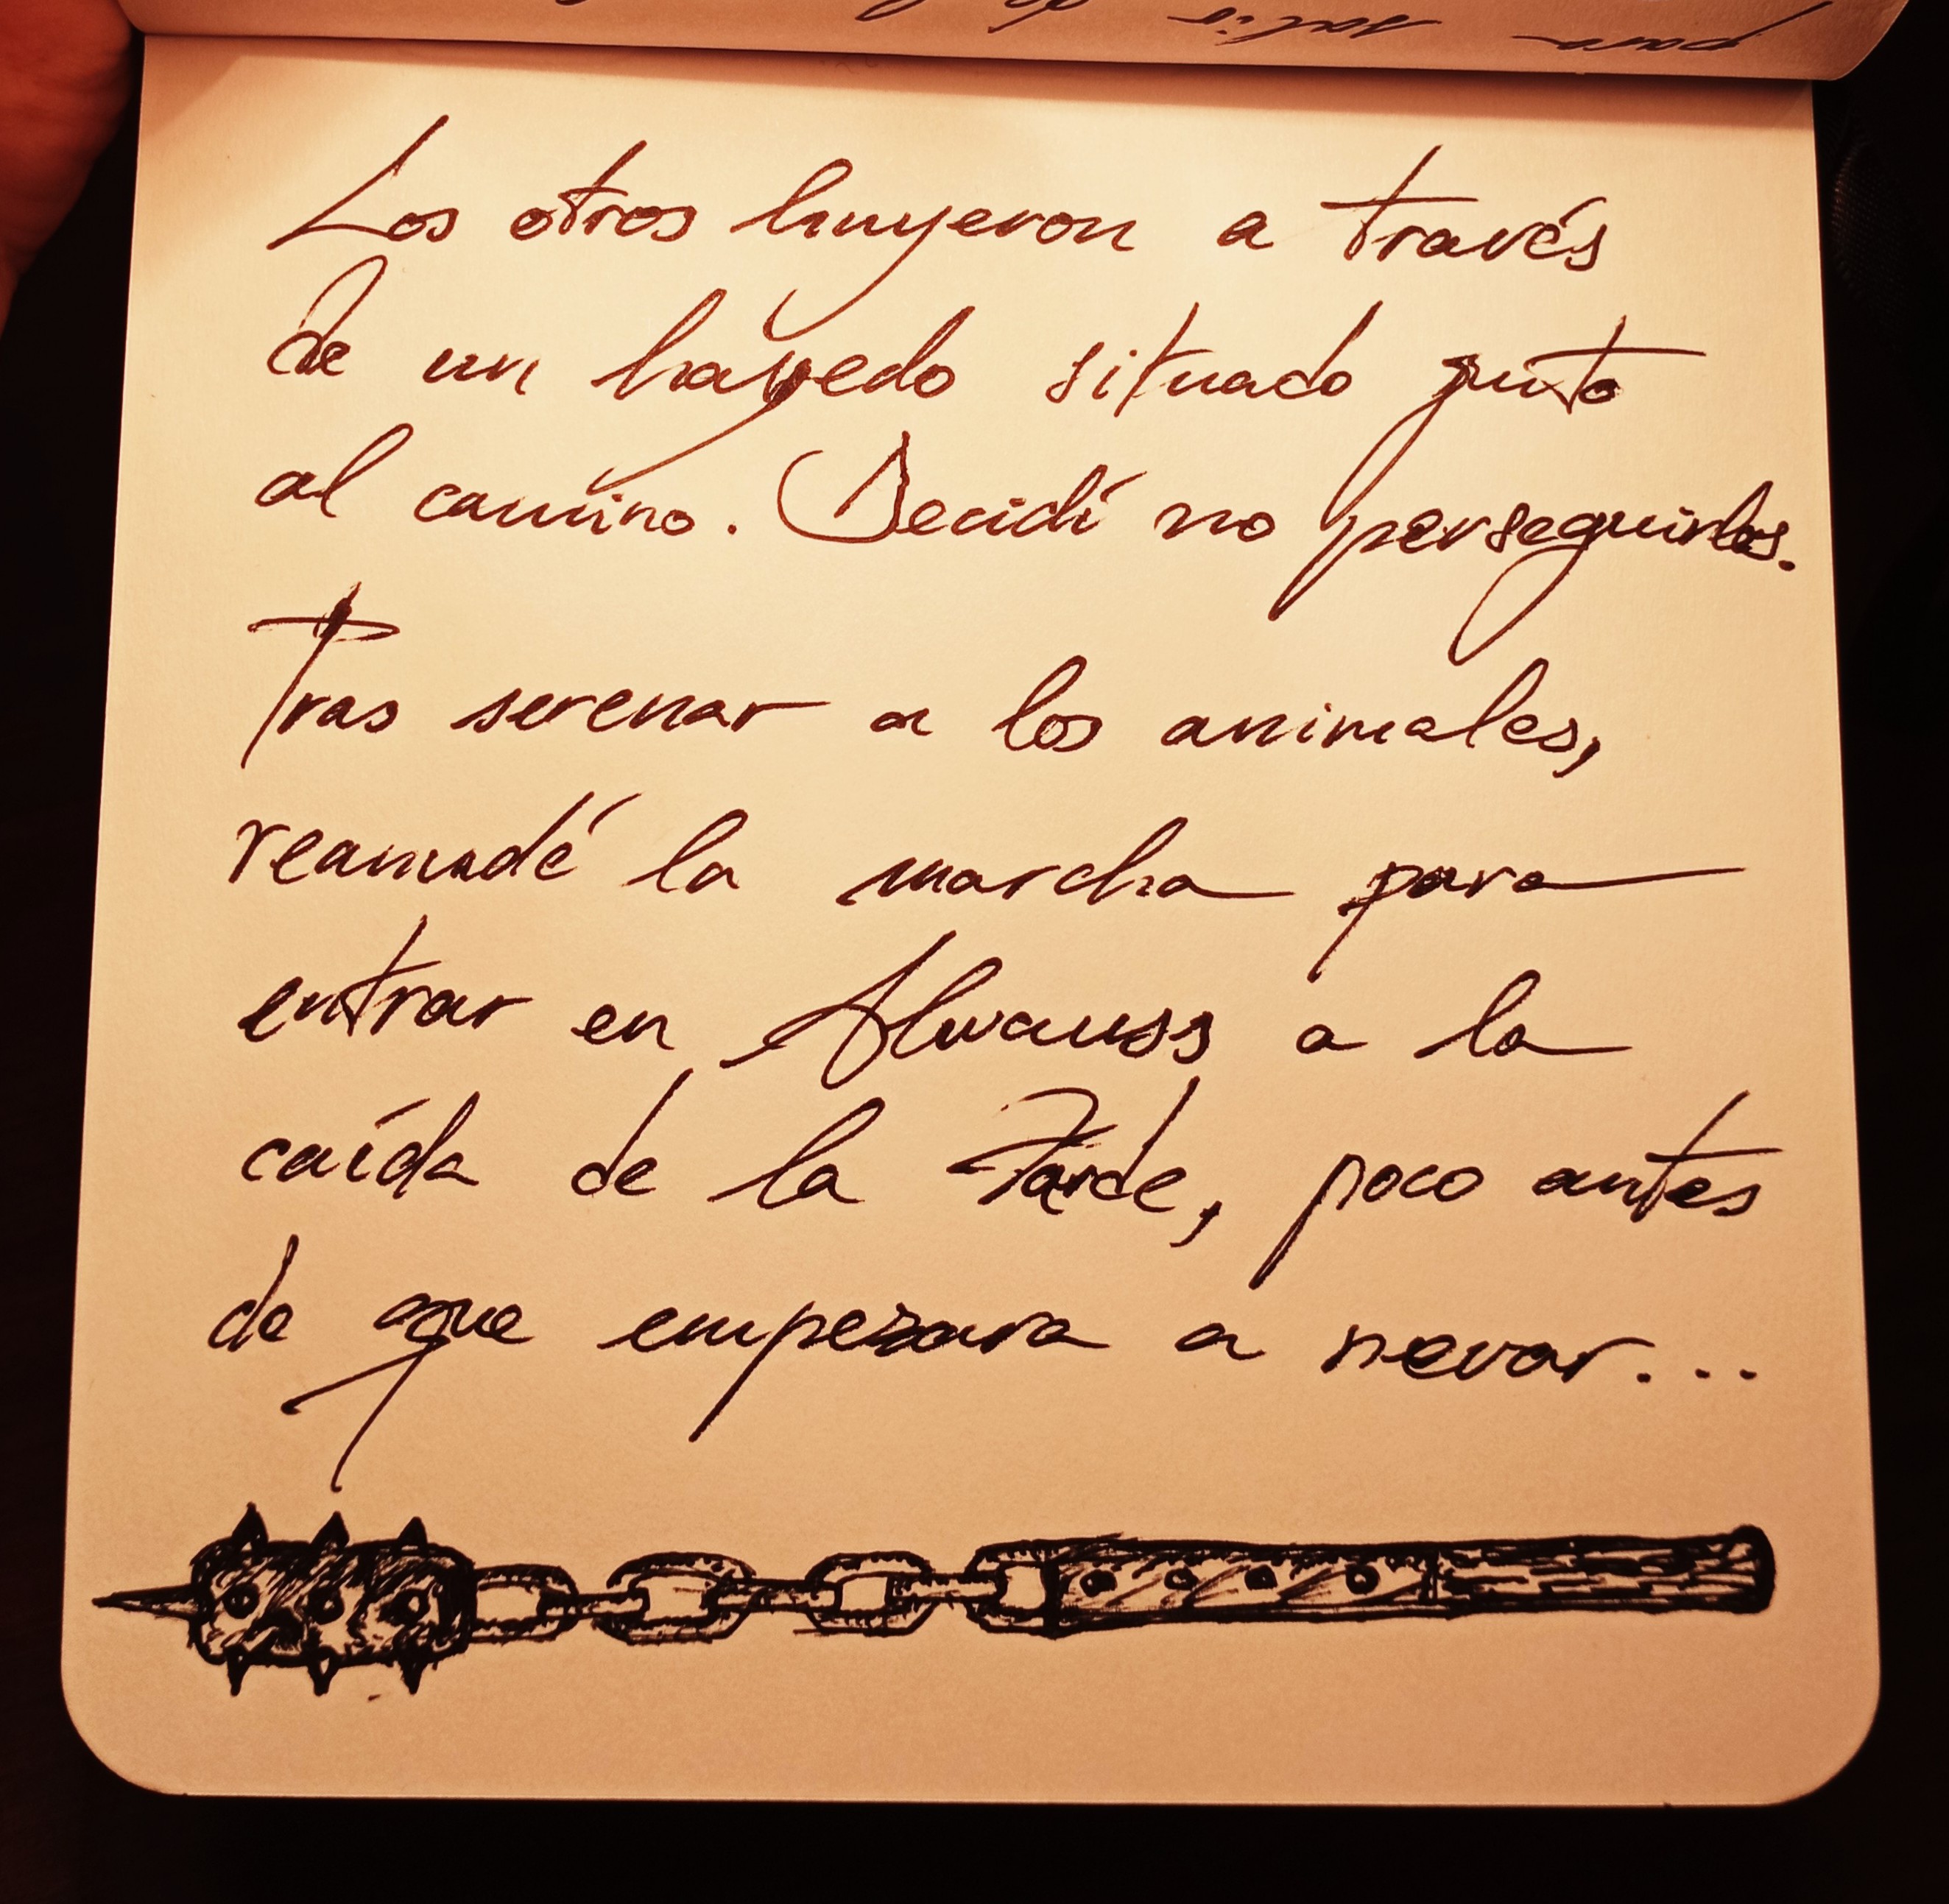 Los otros huyeron a través
de un hayedo situado junto
al camino. Decidí no perseguirlos.
Tras serenar a los animales,
reanudé la marcha para
entrar en Alwauss a la
caída de la Tarde, poco antes
de que empezara a nevar...